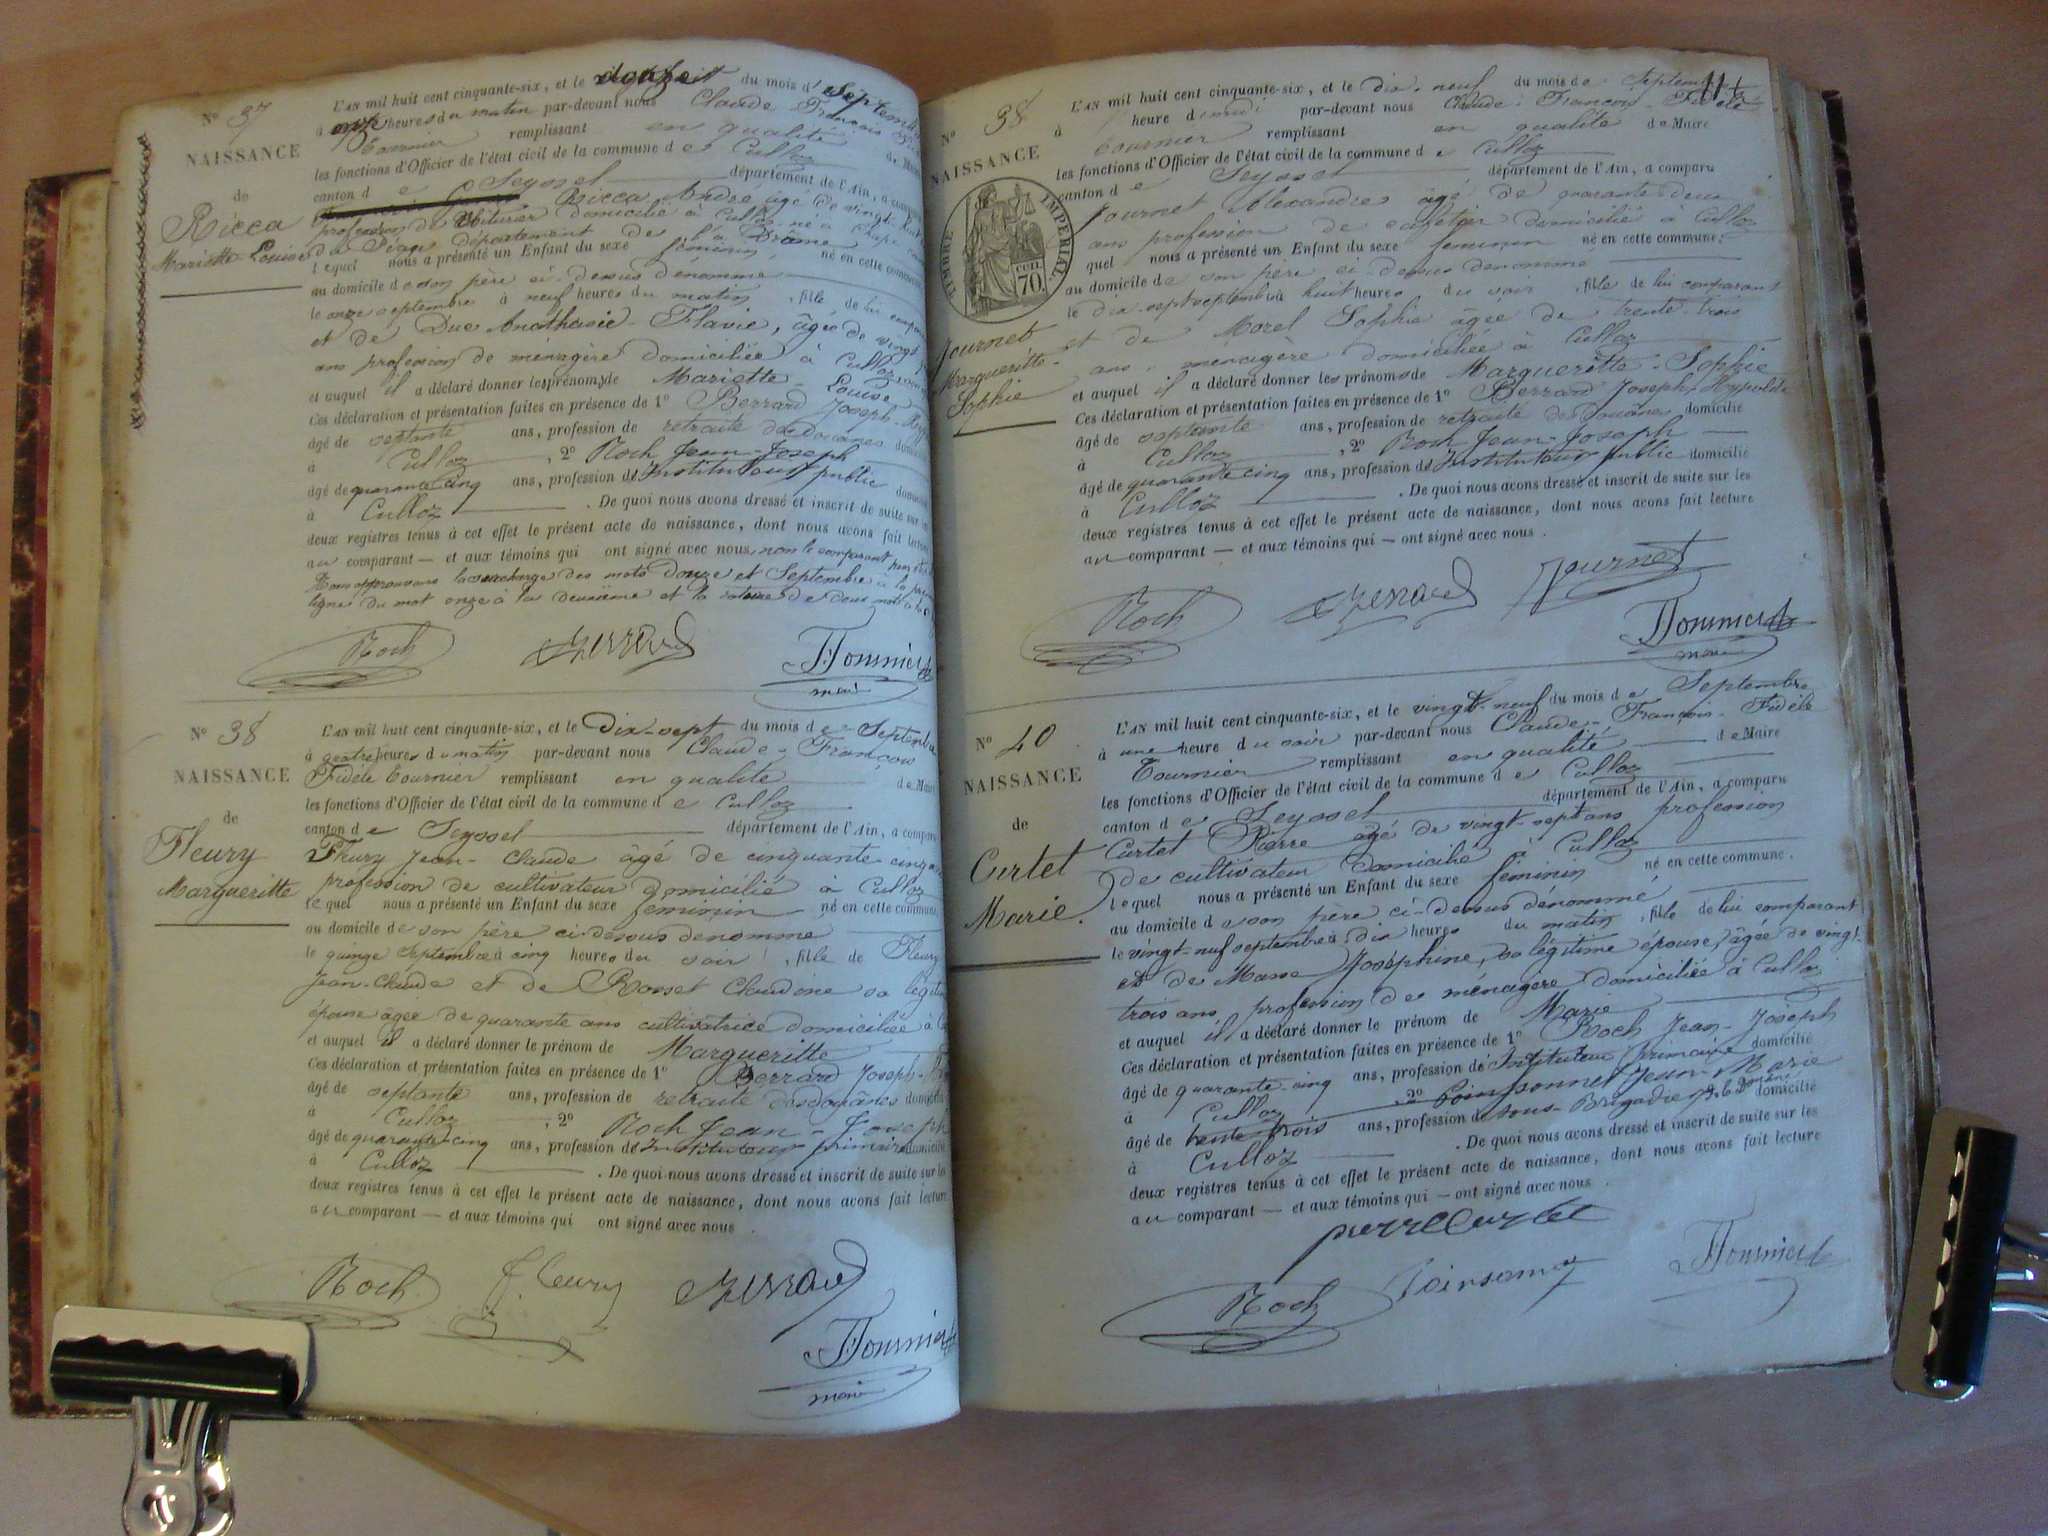 L'AN mil huit cent cinquante-six, et le douze du mois d' Septembre
à onze heures du matin par-devant nous Claude François
Nº 37
Tournier remplissant en qualité de Maire
NAISSANCE
les fonctions d'Officier de l'état civil de la commune de Culloz
de
canton de Seyssel département de l'Ain, a comparu
Ricca
Mariette Louise
Ricca André, âgé de vingt-huit
profession de Voiturier domicilié à Culloz né à
département de la Drôme
lequel nous a présenté un Enfant du sexe féminin, né en cette commune
au domicile de son père ci-dessus dénommé
le onze septembre à neuf heures du matin, fille de lui comparant
et de Duc Anathasie-Flavie, âgée de vingt
ans profession de ménagère domiciliée à Culloz
et auquel il a déclaré donner les prénoms de Mariette-Louise
Ces déclaration et présentation faites en présence de 1º Berrard Joseph-
âgé de septante ans, profession de retraité des Douanes domicilié
à Culloz, 2º Roch Jean-Joseph
âgé de quarante cinq ans, profession d'Instituteur public domicilié
à Culloz. De quoi nous avons dressé et inscrit de suite sur les
deux registres tenus à cet effet le présent acte de naissance, dont nous avons fait lecture
au comparant — et aux témoins qui ont signé avec nous, non le comparant pour
Nous approuvons la surcharge des mots Douze et Septembre à la première
ligne du mot onze à la deuxième et la rature de deux mots à la
Roch Berrard Tournier
maire
Nº 38
NAISSANCE
de
Fleury
Margueritte
L'AN mil huit cent cinquante-six, et le Dix-sept du mois de Septembre
à quatre heures du matin par-devant nous Claude-François
Fidèle Tournier remplissant en qualité de Maire
les fonctions d'Officier de l'état civil de la commune de Culloz
canton de Seyssel département de l'Ain, a comparu
Fleury Jean-Claude âgé de cinquante-cinq ans
profession de cultivateur domicilié à Culloz
lequel nous a présenté un Enfant du sexe féminin né en cette commune,
au domicile de son père ci-dessus dénommé
le quinze Septembre à cinq heures du soir, fille de Fleury
Jean-Claude et de Rosset Claudine sa légitime
épouse âgée de quarante ans cultivatrice domiciliée à
et auquel il a déclaré donner le prénom de Margueritte
Ces déclaration et présentation faites en présence de 1º Berrard Joseph-
âgé de septante ans, profession de retraité des douânes domicilié
à Culloz, 2º Roch Jean-Joseph
âgé de quarante-cinq ans, profession d'Instituteur primaire domicilié
à Culloz. De quoi nous avons dressé et inscrit de suite sur les
deux registres tenus à cet effet le présent acte de naissance, dont nous avons fait lecture
au comparant — et aux témoins qui ont signé avec nous.
Roch Fleury Berrard
Tournier
maire
L'AN mil huit cent cinquante-six, et le dix-neuf du mois de Septembre
à heure du par-devant nous Claude-François-Fidèle
Nº 38
Tournier remplissant en qualité de Maire
NAISSANCE
les fonctions d'Officier de l'état civil de la commune de Culloz
canton de Seyssel département de l'Ain, a comparu
TIMBRE IMPERIAL
CENT.
70.
Journet
Margueritte-
Sophie
Journet Alexandre âgé de quarante deux
ans profession de cafetier domicilié à Culloz
lequel nous a présenté un Enfant du sexe féminin né en cette commune,
au domicile de son père ci-dessus dénommé
le dix-sept septembre à huit heures du soir, fille de lui comparant
et de Morel Sophie âgée de trente-trois
ans, ménagère domiciliée à Culloz
et auquel il a déclaré donner les prénoms de Margueritte-Sophie
Ces déclaration et présentation faites en présence de 1º Berrard Joseph-Hypolite
âgé de septante ans, profession de retraité des Douanes domicilié
à Culloz, 2º Roch Jean-Joseph
âgé de quarante cinq ans, profession d'Instituteur public domicilié
à Culloz. De quoi nous avons dressé et inscrit de suite sur les
deux registres tenus à cet effet le présent acte de naissance, dont nous avons fait lecture
au comparant — et aux témoins qui — ont signé avec nous.
Roch Berrard Journet
Tournier
maire
Nº 40
NAISSANCE
de
Curtet
Marie
L'AN mil huit cent cinquante-six, et le vingt-neuf du mois de Septembre
à une heure du soir par-devant nous Claude-François-Fidèle
Tournier remplissant en qualité de Maire
les fonctions d'Officier de l'état civil de la commune de Culloz
canton de Seyssel département de l'Ain, a comparu
Curtet Pierre âgé de vingt-sept ans profession
de cultivateur domicilié à Culloz
lequel nous a présenté un Enfant du sexe féminin né en cette commune.
au domicile de son père ci-dessus dénommé
le vingt-neuf septembre à dix heures du matin, fille de lui comparant
et de Masse Joséphine, sa légitime épouse, âgée de vingt-
trois ans profession de ménagère domiciliée à Culloz
et auquel il a déclaré donner le prénom de Marie
Ces déclaration et présentation faites en présence de 1º Roch Jean-Joseph
âgé de quarante-cinq ans, profession d'Instituteur primaire domicilié
à Culloz, 2º Poinssonnet Jean-Marie
âgé de trente trois ans, profession de sous-Brigadier domicilié
à Culloz. De quoi nous avons dressé et inscrit de suite sur les
deux registres tenus à cet effet le présent acte de naissance, dont nous avons fait lecture
au comparant — et aux témoins qui — ont signé avec nous.
pierre Curtet
Roch Tournier